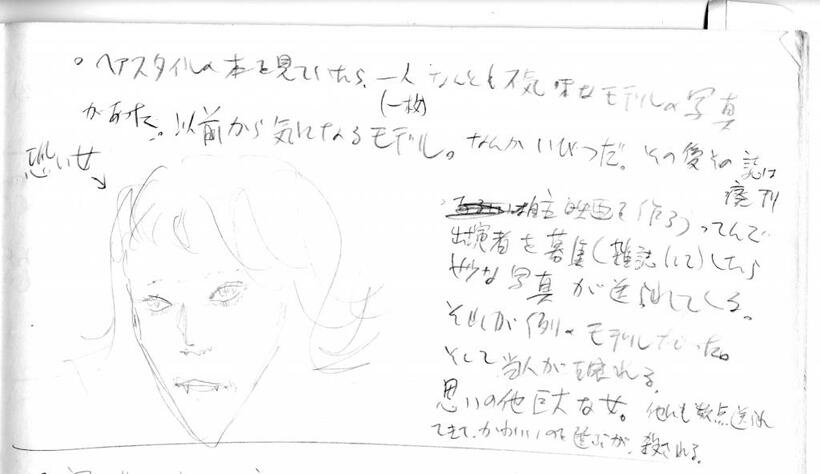 。ヘアスタイルの本を見ていたら、一人なんとも不気味なモデルの写真
(一枚)
があった。以前から気になるモデル。なんかいびつだ。その後その誌は
廃刊
恐い女
自主映画を作る)ってんで
出演者を募集(雑誌にて)したら
妙な写真が送られてくる。
それが例のモデルだった。
そして当人が現れる。
思いの他巨大な女。他にも数点送られ
てきて、かわいいのを選ぶが、殺される。